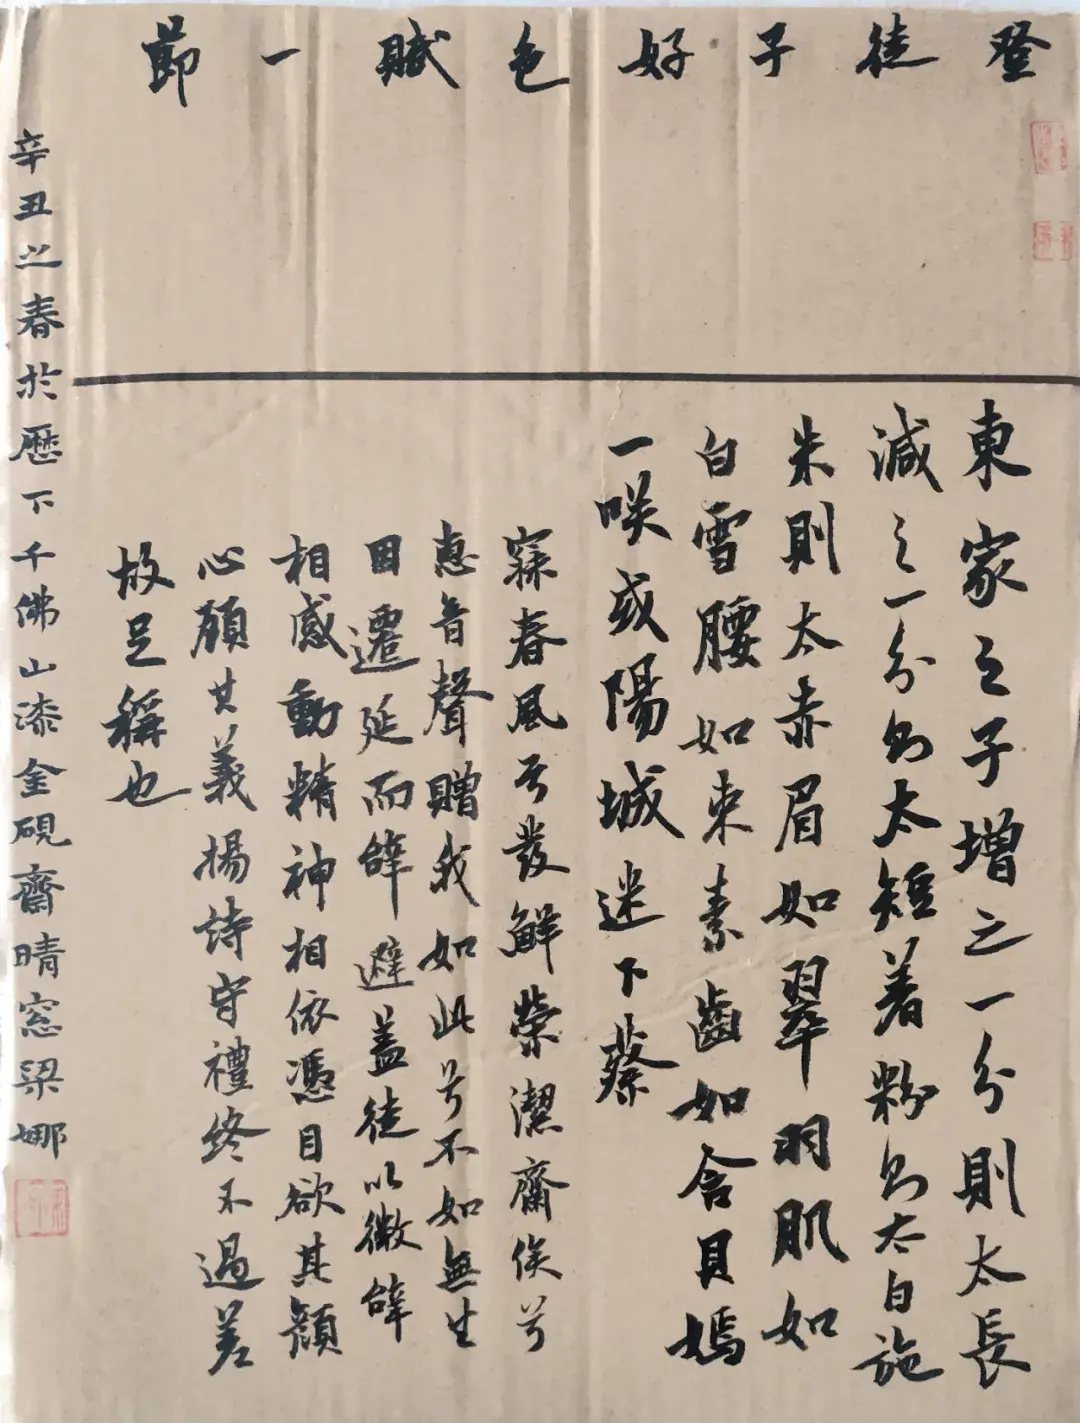 登徒子好色賦一節
東家之子增之一分則太長
減之一分則太短著粉則太白施
朱則太赤眉如翠羽肌如
白雪腰如束素齒如含貝嫣
一咲或陽城迷下蔡
寐春風兮發鮮榮潔齋俟兮
惠音聲贈我如此兮不如無生
因遷延而辭避蓋徒以微辭
相感動精神相依憑目欲其顏
心顧其義揚詩守禮終不過差
故足稱也
辛丑之春於歷下千佛山漆金硯齋晴窓梁娜